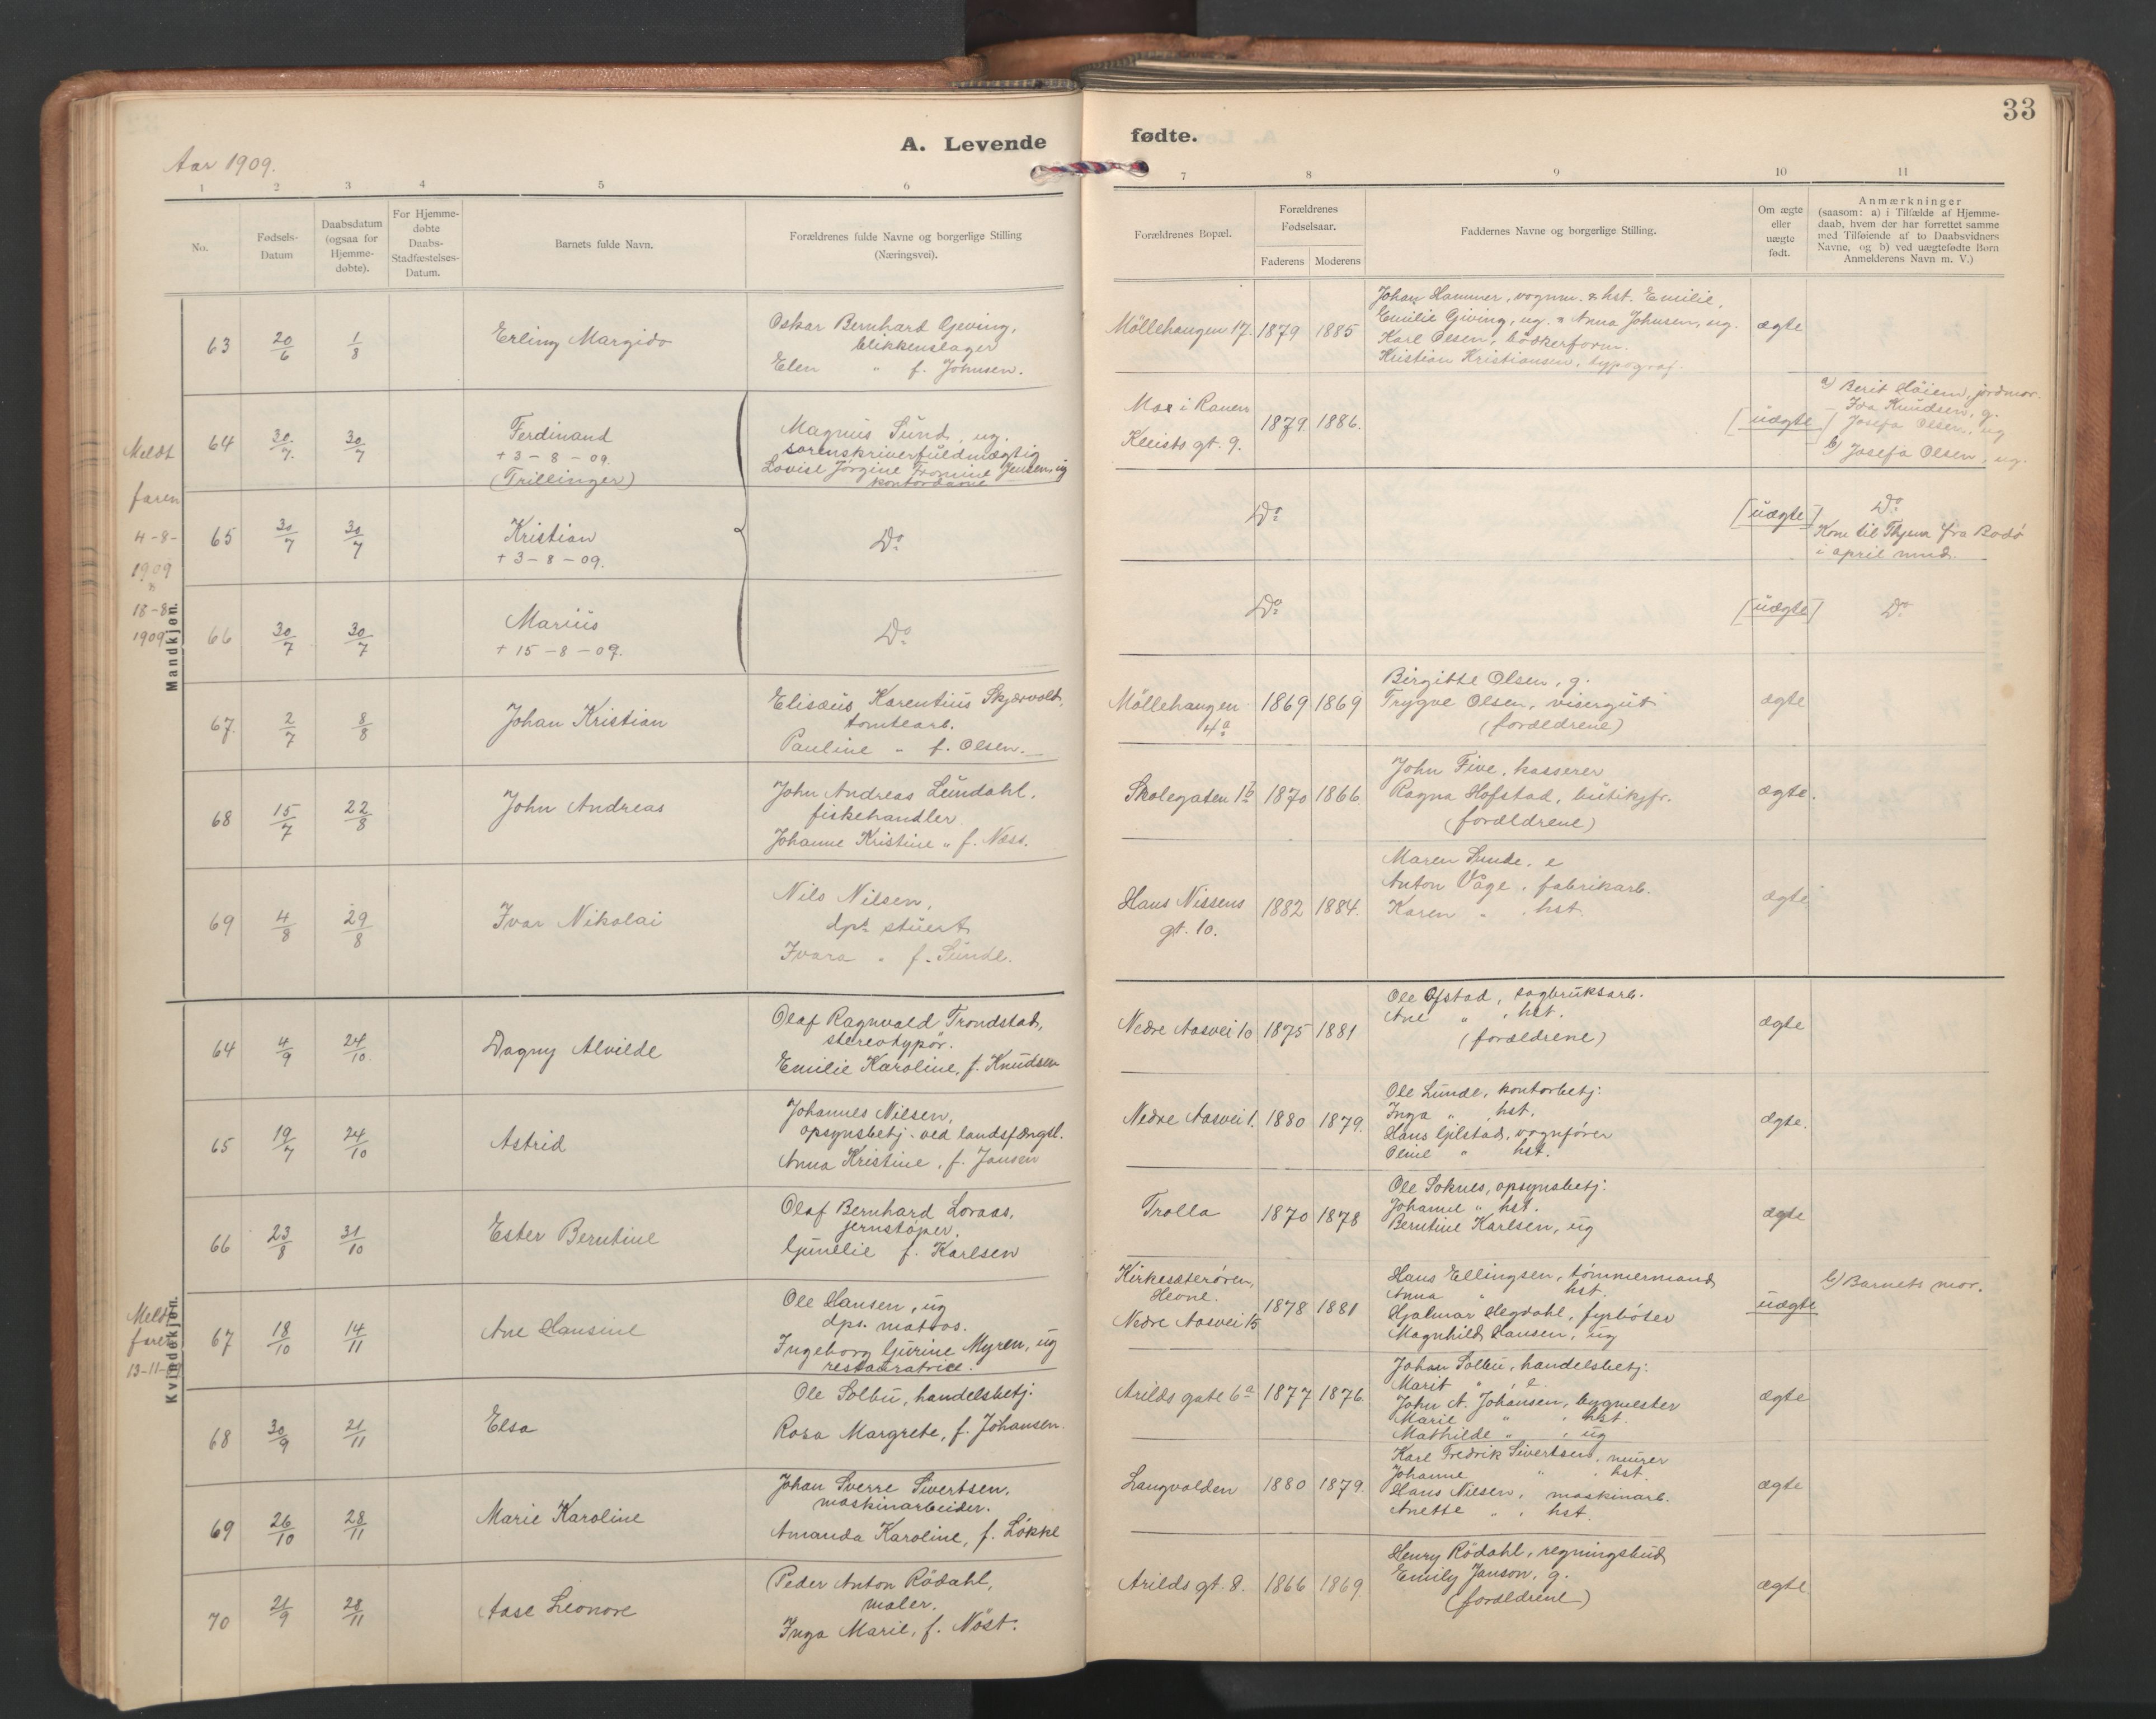 33
A. Levende fødte.
Aar 1909.
1 2 3 4 5 6 7 8 9 10 11
No.
Fødsels-
Datum
Daabsdatum
(ogsaa for
Hjemme-
døbte).
For Hjemme-
døbte
Daabs-
Stadfæstelses-
Datum.
Barnets fulde Navn.
Forældrenes fulde Navne og borgerlige Stilling
(Næringsvei).
Forældrenes Bopæl.
Forældrenes
Fødselsaar.
Faderens Moderens
Faddernes Navne og borgerlige Stilling.
Om ægte
eller
uægte
født.
Anmærkninger
(saasom: a) i Tilfælde af Hjemme-
daab, hvem der har forrettet samme
med Tilføiende af to Daabsvidners
Navne, og b) ved uægtefødte Børn
Anmelderens Navn m. V.)
Mandkjøn.
63 20/6 1/8
Erling Margido
Oskar Bernhard Gjeving,
blikkenslager
Elen " f. Johnsen.
Möllehaugen 17. 1879 1885
Johan Hammer, vognm. & hst. Emilie,
Emilie Gjeving, ug. & Anna Johnsen, ug.
Karl Olsen, bödkerform.
Kristian Kristiansen, typograf.
ægte
Meldt
faren
4-8-
1909
&
18-8
1909
64 30/7. 30/7
Ferdinand
+ 3-8-09.
(Trillinger)
Magnus Sund, ug.
sorenskriverfuldmægtig
Lovise Jørgine Fromine Jensen, ug
kontordame
Mo i Ranen
Kleists gt. 9.
1879. 1886.
[uægte]
a) Berit Höiem, jordmor.
Ida Knudsen, g.
Josefa Olsen, ug
b) Josefa Olsen, ug.
65 30/7 30/7
Kristian
+ 3-8-09.
Do
Do
[uægte]
Do
Kom til Thjem fra Bodö
i april mnd.
66 30/7 30/7
Marius
+ 15-8-09.
Do
Do
[uægte]
Do
67. 2/7 8/8
Johan Kristian
Elisæus Karentius Skjærvold,
tomtearb.
Pauline " f. Olsen.
Möllehaugen
4a
1869 1869
Birgitte Olsen, g.
Trygve Olsen, visergut
(forældrene)
ægte
68 15/7 22/8
John Andreas
John Andreas Lundahl,
fiskehandler.
Johanne Kristine " f. Næss.
Skolegaten 1b 1870 1866
John Five, kasserer
Ragna Hofstad, butikjfr.
(forældrene)
ægte.
69 4/8 29/8
Ivar Nikolai
Nils Nilsen,
dpsk. stuert
Ivara " f. Sunde.
Hans Nissens
gt. 10.
1882 1884.
Maren Sunde, e
Anton Vage, fabrikarb.
Karen " , hst.
ægte
Kvindekjøn.
64 4/9 24/10.
Dagny Alvilde
Olaf Ragnvald Trondstad,
stereotypör.
Emilie Karoline, f. Knudsen
Nedre Aasvei 10 1875 1881
Ole Ofstad, sagbruksarb.
Ane " , hst.
(forældrene)
ægte
65 19/7 24/10
Astrid
Johannes Nilsen,
opsynsbetj. ved landsfængsl.
Anna Kristine, f. Jansen
Nedre Aasvei 1. 1880 1879.
Ole Lunde, kontorbetj:
Inga " hst.
Hans Gilstad, vognfører
Oline " hst.
ægte.
66 23/8 31/10
Ester Berntine
Olaf Bernhard Loraas,
jernstöper.
Gunelie f. Karlsen
Trolla 1870 1878
Ole Soknes, opsynsbetj:
Johanne " hst.
Berntine Karlsen, ug
ægte
Meldt
faren
13-11-
67 18/10 14/11
Ane Hansine
Ole Hansen, ug
dpsk. matros.
Ingeborg Gurine Myren, ug
restauratrice.
Kirkesæterören,
Hevne.
Nedre Aasvei 15
1878 1881
Hans Ellingsen, tömmermand
Anna " hst.
Hjalmar Hegdahl, fyrböter
Magnhild Hansen, ug
uægte
b) Barnets mor.
68 30/9 21/11
Elsa
Ole Solbu, handelsbetj.
Rosa Margrete, f. Johansen.
Arilds gate 6a 1877 1876.
Johan Solbu, handelsbetj:
Marit " , e.
John A. Johansen, bygmester
Marie " , hst.
Mathilde " , ug
ægte
69 26/10 28/11
Marie Karoline
Johan Sverre Sivertsen,
maskinarbeider.
Amanda Karoline, f. Løkke
Langvolden 1880 1879.
Karl Fredrik Sivertsen, murer
Johanne " , hst.
Hans Nilsen, maskinarb.
Anette " , hst.
ægte
70 21/9 28/11
Aase Leonore
Peder Anton Rödahl,
maler.
Inga Marie, f. Nöst.
Arilds gt. 8. 1866 1869.
Henry Rödahl, regningsbud
Emily Janson, g.
(forældrene)
ægte